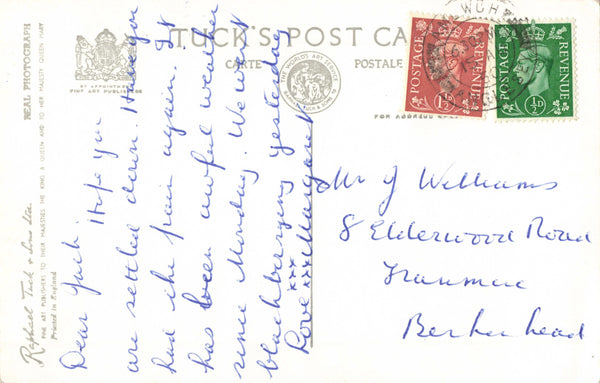 TUCK'S POST CA
CARTE POSTALE
BY APPOINTMENT
FINE ART PUBLISHERS
THE WORLD'S ART SERVICE
RAPHAEL TUCK & SONS LD
FOR ADDRESS ONLY
POSTAGE REVENUE
1½D
POSTAGE REVENUE
½D
REAL PHOTOGRAPH
Raphael Tuck & Sons Ltd.
FINE ART PUBLISHERS TO THEIR MAJESTIES THE KING & QUEEN AND TO HER MAJESTY QUEEN MARY
Printed in England
Dear Jack. Hope you
are settled down. Have you
had the pain again. It
has been awful weather
since Monday. We went
blackberrying yesterday
Love xxx Margaret
xxx
Mr J Williams
8 Elderwood Road
Tranmere
Berkenhead